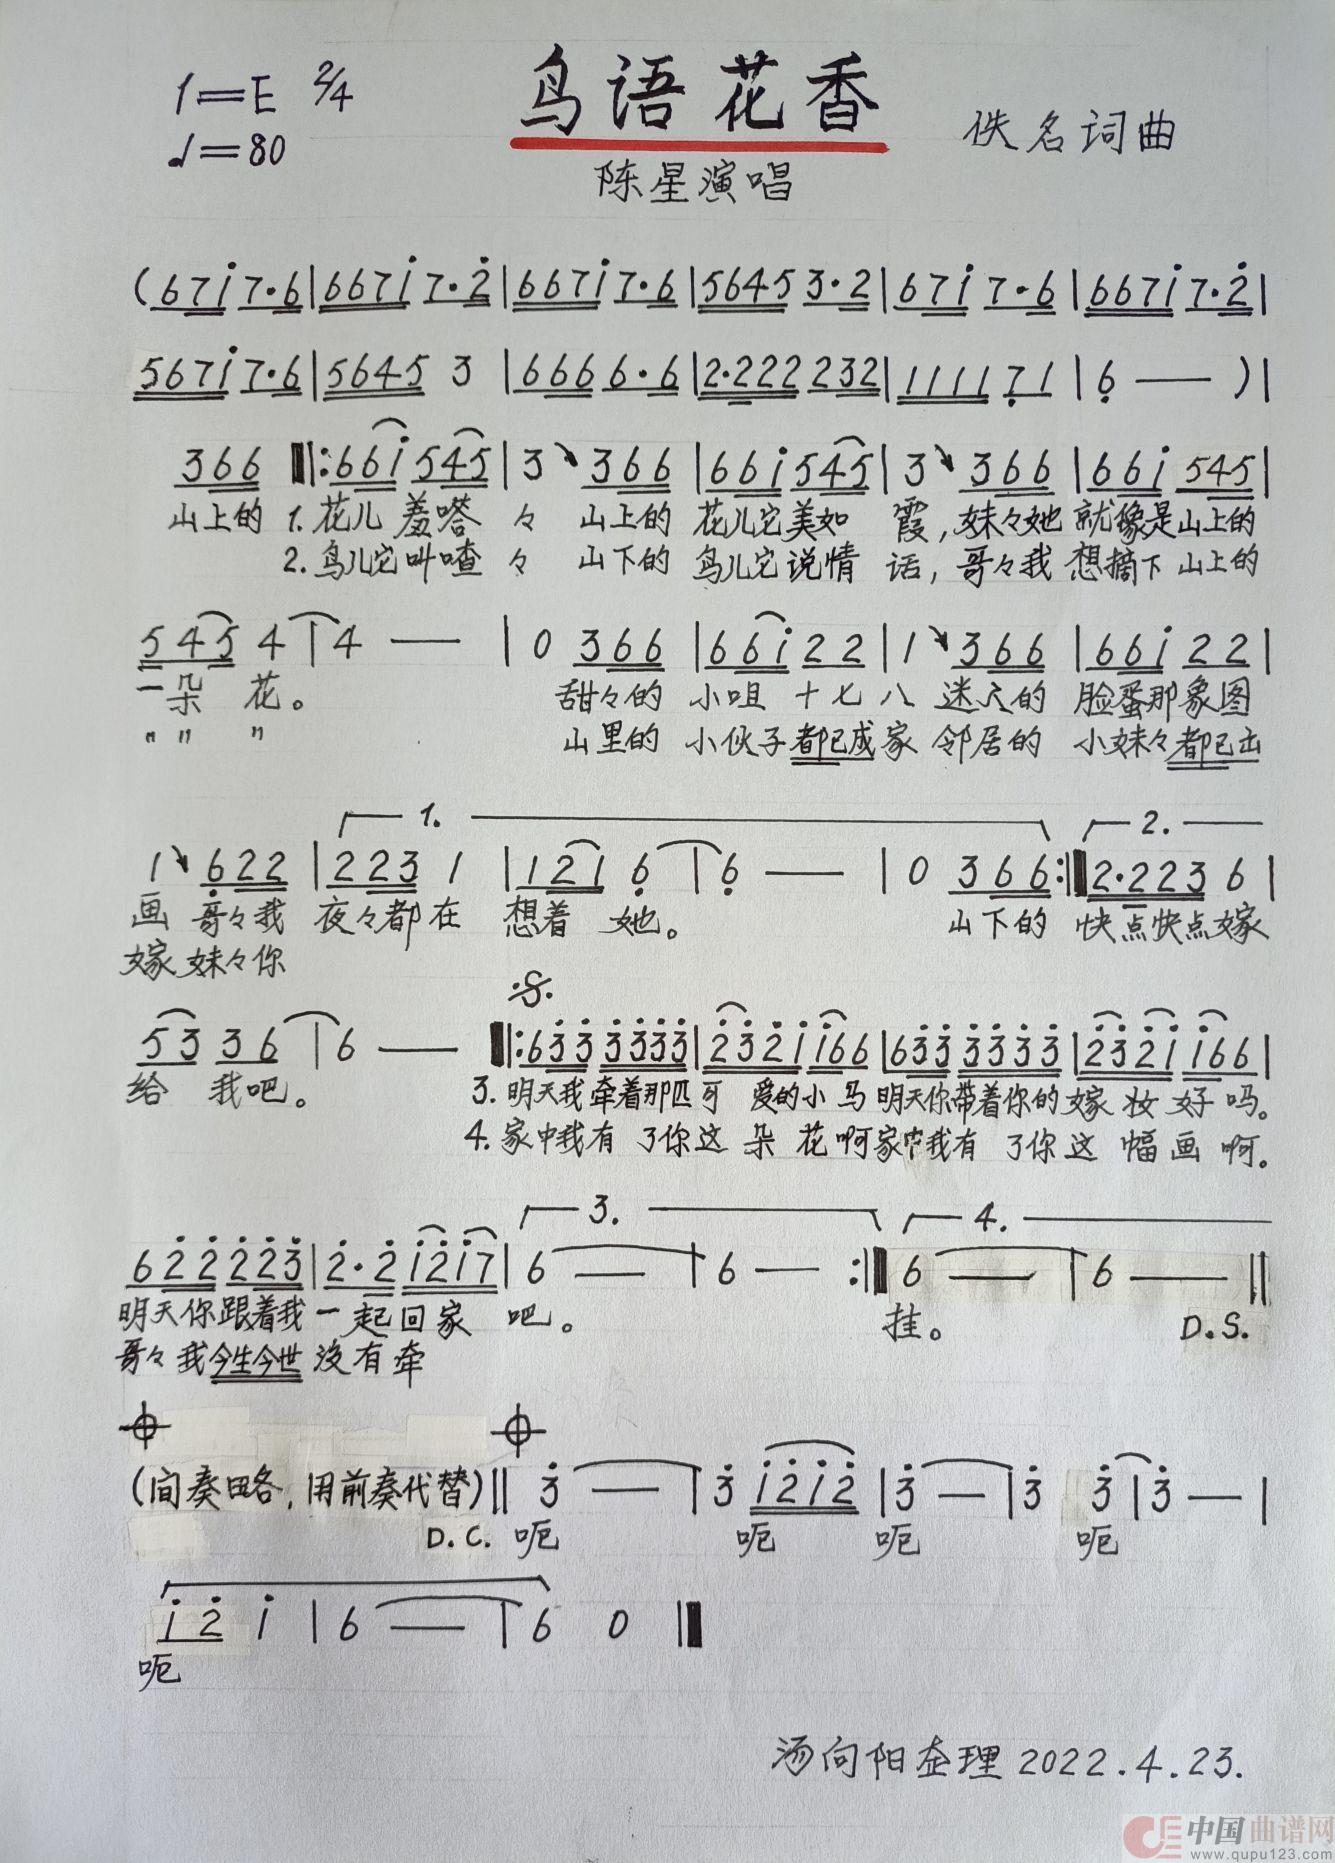 1=E 2/4 鸟语花香
♩=80 陈星演唱 佚名词曲
(67i 7·6|667i 7·2|667i 7·6|5645 3·2|67i 7·6|667i 7·2|
567i 7·6|5645 3|666 6·6|2·222 232|1111 71|6 — )|
366 ‖:66i 545|3 366|66i 545|3 366|66i 545|
山上的 1.花儿羞嗒々 山上的 花儿它美如 霞,妹々她 就像是山上的
2.鸟儿它叫喳々 山下的 鸟儿它说情 话,哥々我 想摘下 山上的
545 4|4 — |0 366|66i 22|1 366|66i 22|
一朵 花。 甜々的 小咀 十七八 迷人的 脸蛋那象图
〃 〃 〃 山里的 小伙子都已成家 邻居的 小妹々都已出
1. 2.
1 622|223 1|121 6|6 — |0 366:‖2·223 6|
画 哥々我 夜々都在 想着 她。 山下的 快点快点嫁
嫁 妹々你
53 36|6 — ‖:633 3333|2321 i66|633 3333|2321 i66|
给 我吧。 3.明天我牵着那匹可 爱的小马 明天你带着你的嫁 妆 好吗。
4.家中我有 了你这 朵 花啊家中我有 了你这 幅画 啊。
3. 4.
622 223|2·2 i2i7|6 — |6 — :‖6 — |6 — ‖
明天你跟着我 一起回家 吧。 挂。 D.S.
哥々我今生今世 没有牵
(间奏略,用前奏代替)‖3 — |3 i2i2|3 — |3 3|3 — |
D.C. 呃 呃 呃 呃
i2 i|6 — |6 0‖
呃
汤向阳企理2022.4.23.
中国曲谱网
www.qupu123.com